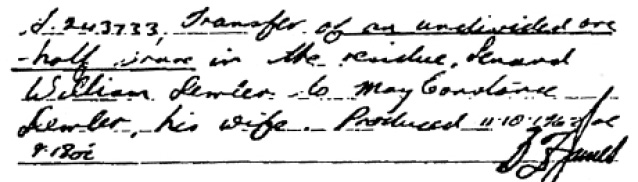 S. 243733, Transfer of an undivided one
-half share in the residue, Lenard
William Lemler to May Constance
Lemler, his wife. Produced 11.10.196 at
9.